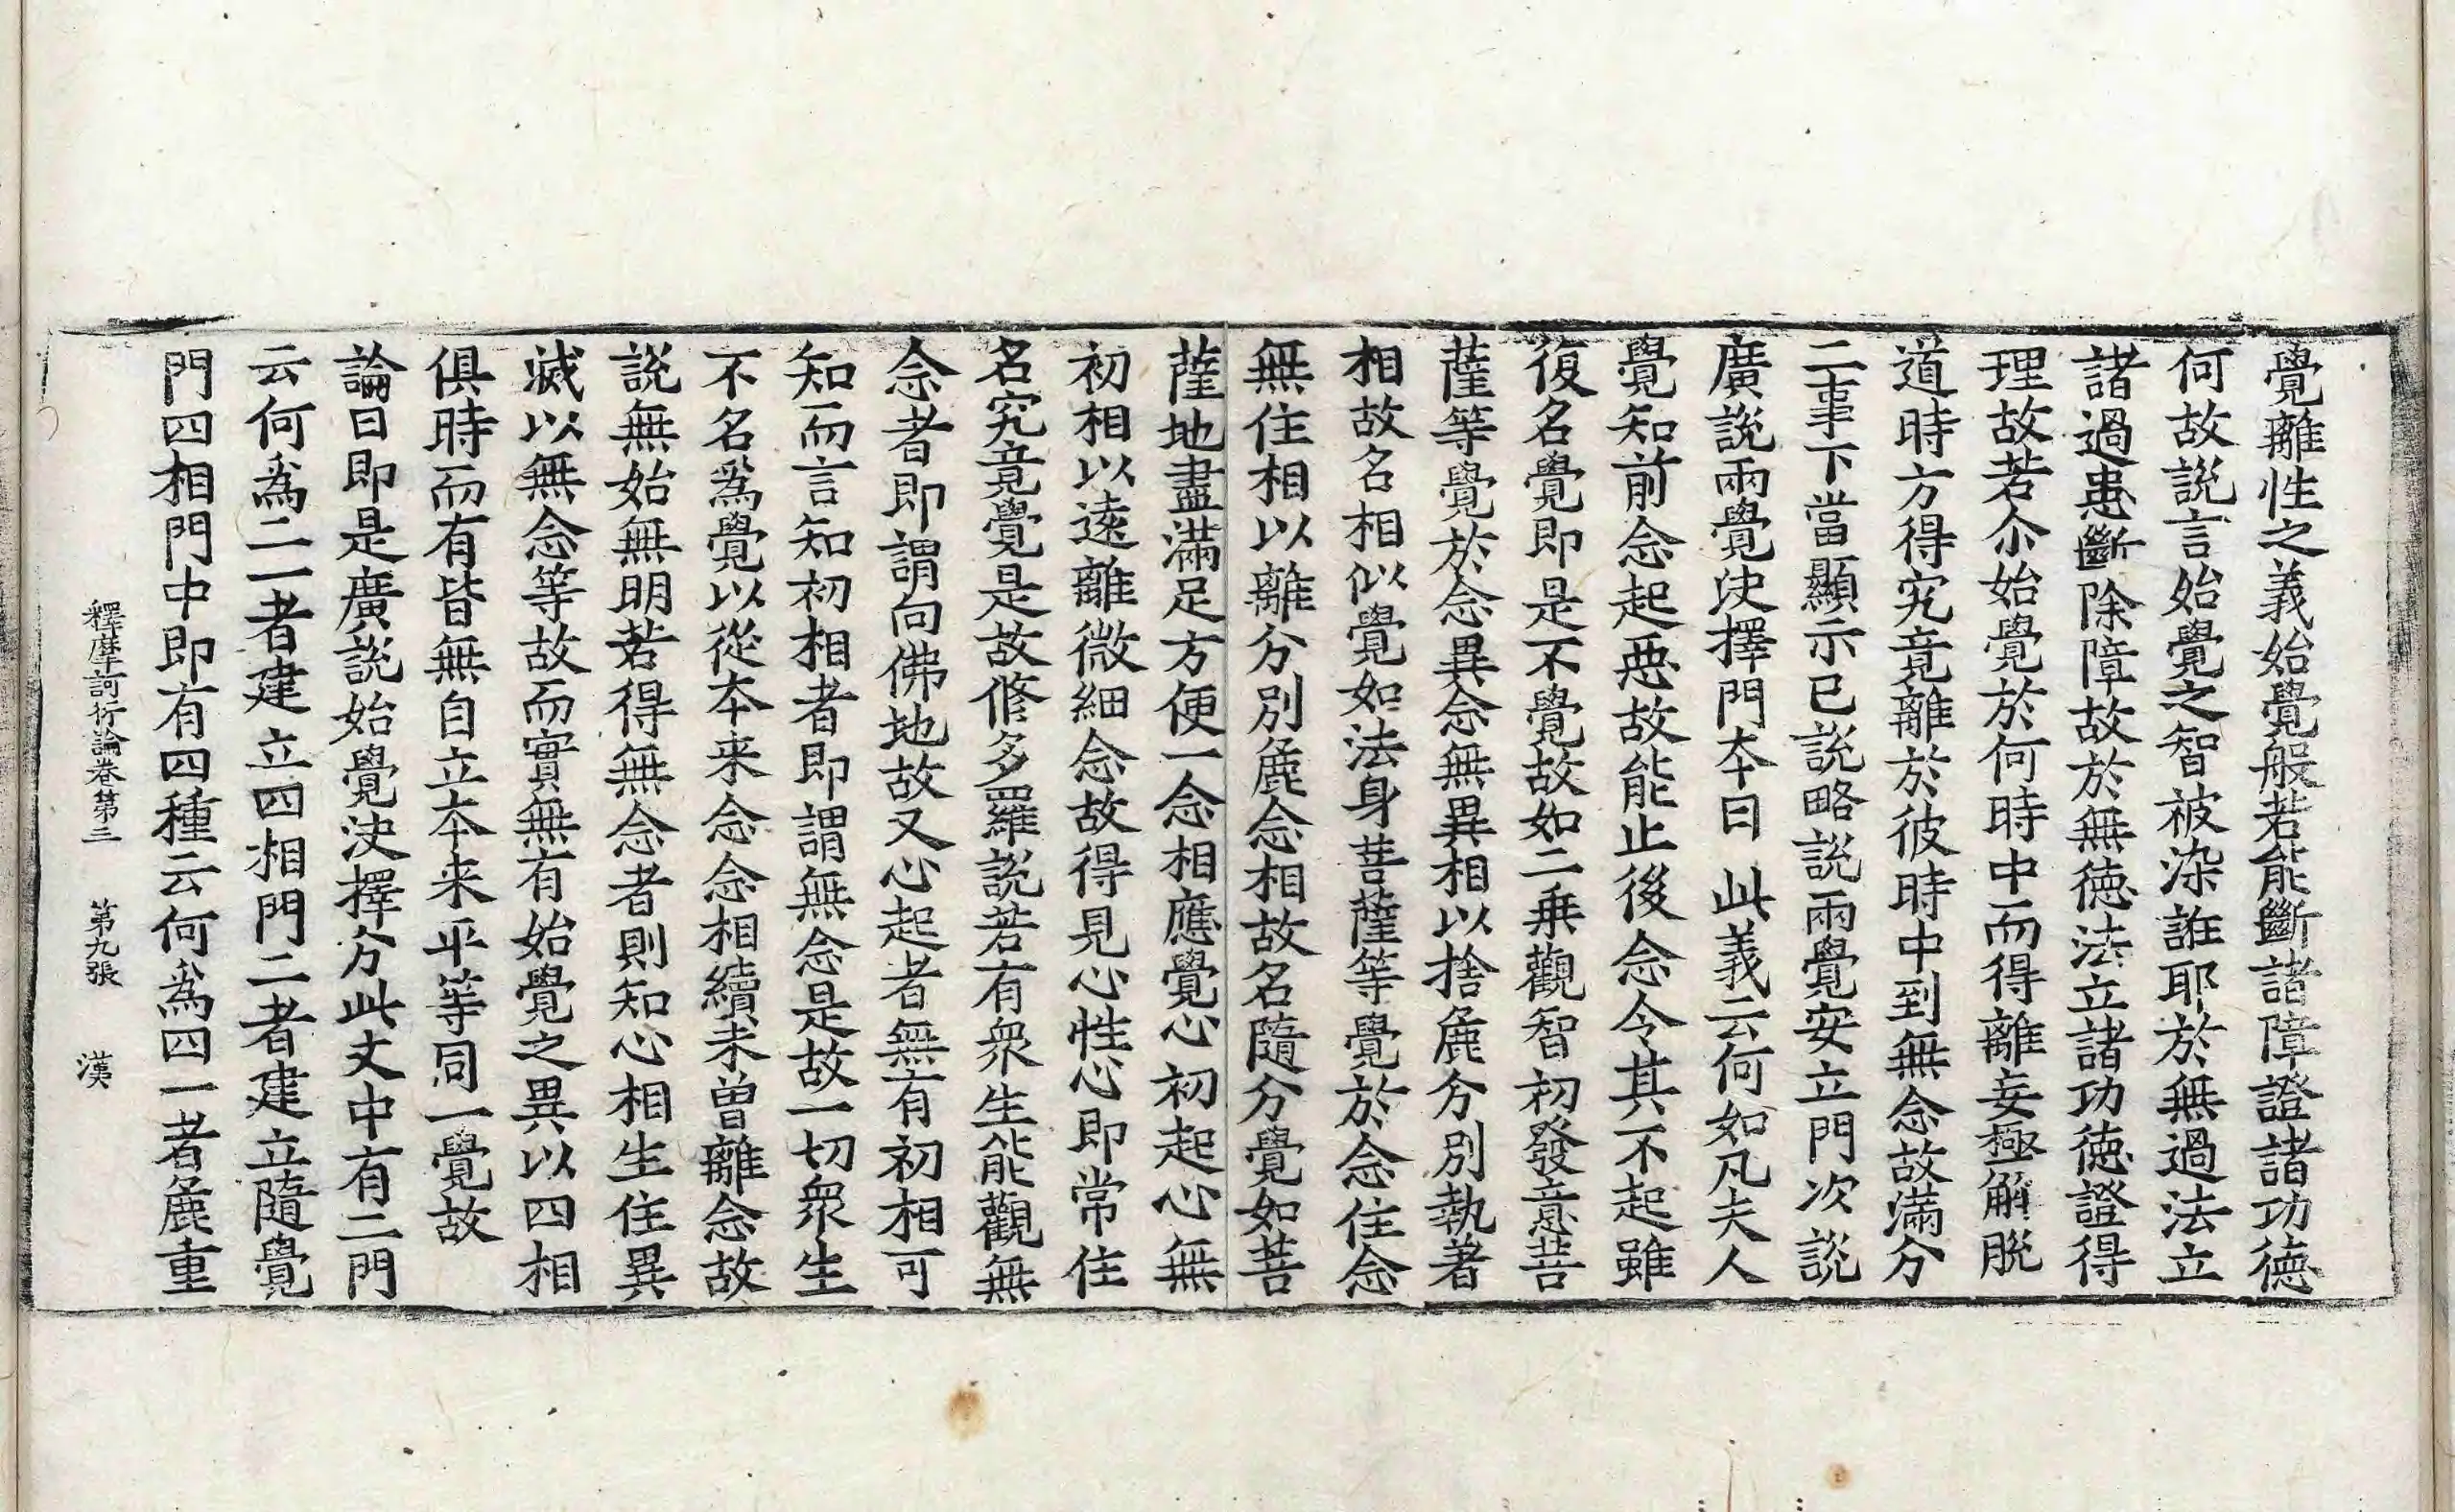 覺離性之義始覺般若能斷諸障證諸功德
何故說言始覺之智被染誑耶於無過法立
諸過患斷除障故於無德法立諸功德證得
理故若尒始覺於何時中而得離妄極解脫
道時方得究竟離於彼時中到無念故滿分
二事下當顯示已說略說兩覺安立門次說
廣說兩覺決擇門本曰 此義云何如凡夫人
覺知前念起惡故能止後念令其不起雖
復名覺即是不覺故如二乘觀智初發意菩
薩等覺於念異念無異相以捨麁分別執著
相故名相似覺如法身菩薩等覺於念住念
無住相以離分別麁念相故名隨分覺如菩
薩地盡滿足方便一念相應覺心初起心無
初相以遠離微細念故得見心性心即常住
名究竟覺是故修多羅說若有衆生能觀無
念者即謂向佛地故又心起者無有初相可
知而言知初相者即謂無念是故一切衆生
不名爲覺以從本来念念相續未曾離念故
說無始無明若得無念者則知心相生住異
滅以無念等故而實無有始覺之異以四相
俱時而有皆無自立本来平等同一覺故
論曰即是廣說始覺決擇分此文中有二門
云何爲二一者建立四相門二者建立隨覺
門四相門中即有四種云何爲四一者麁重
釋摩訶衍論卷第三 第九張 漢